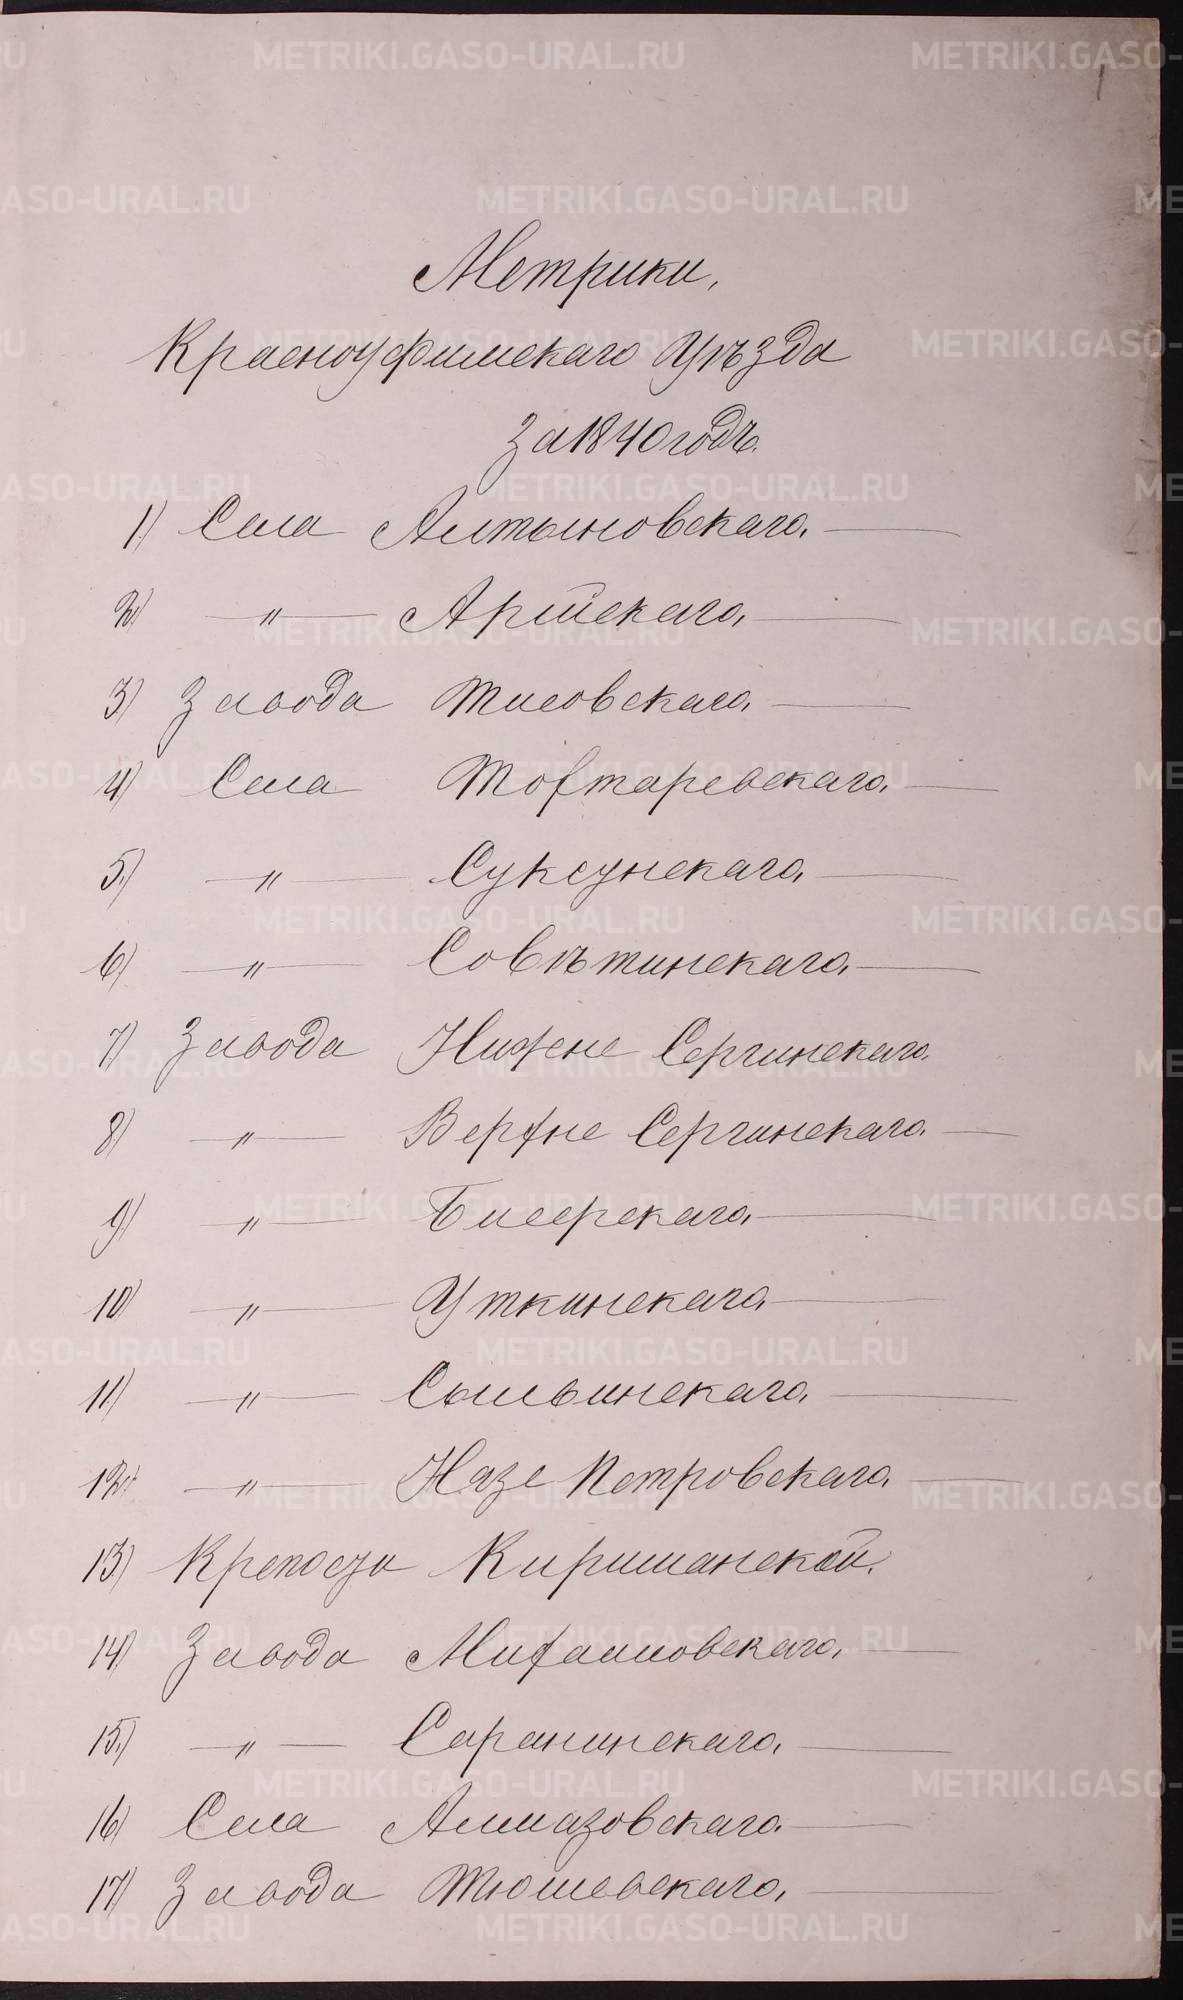 Метрики,
Красноуфимскаго Уѣзда
за 1840 годъ.
1) Села Алтыновскаго.
2) —„— Артйскаго.
3) Завода Тисовскаго.
4) Села Тохтаревскаго.
5) —„— Суксунскаго.
6) —„— Совѣтинскаго.
7) Завода Нижне Сергинскаго.
8) —„— Верхне Сергинскаго.
9) —„— Бисерскаго.
10) —„— Уткинскаго.
11) —„— Сыльвинскаго.
12) —„— Нязе Петровскаго.
13) Крепости Киришанской.
14) Завода Михайловскаго.
15) —„— Саранинскаго.
16) Села Алмазовскаго.
17) Завода Тюшевскаго.
METRIKI.GASO-URAL.RU